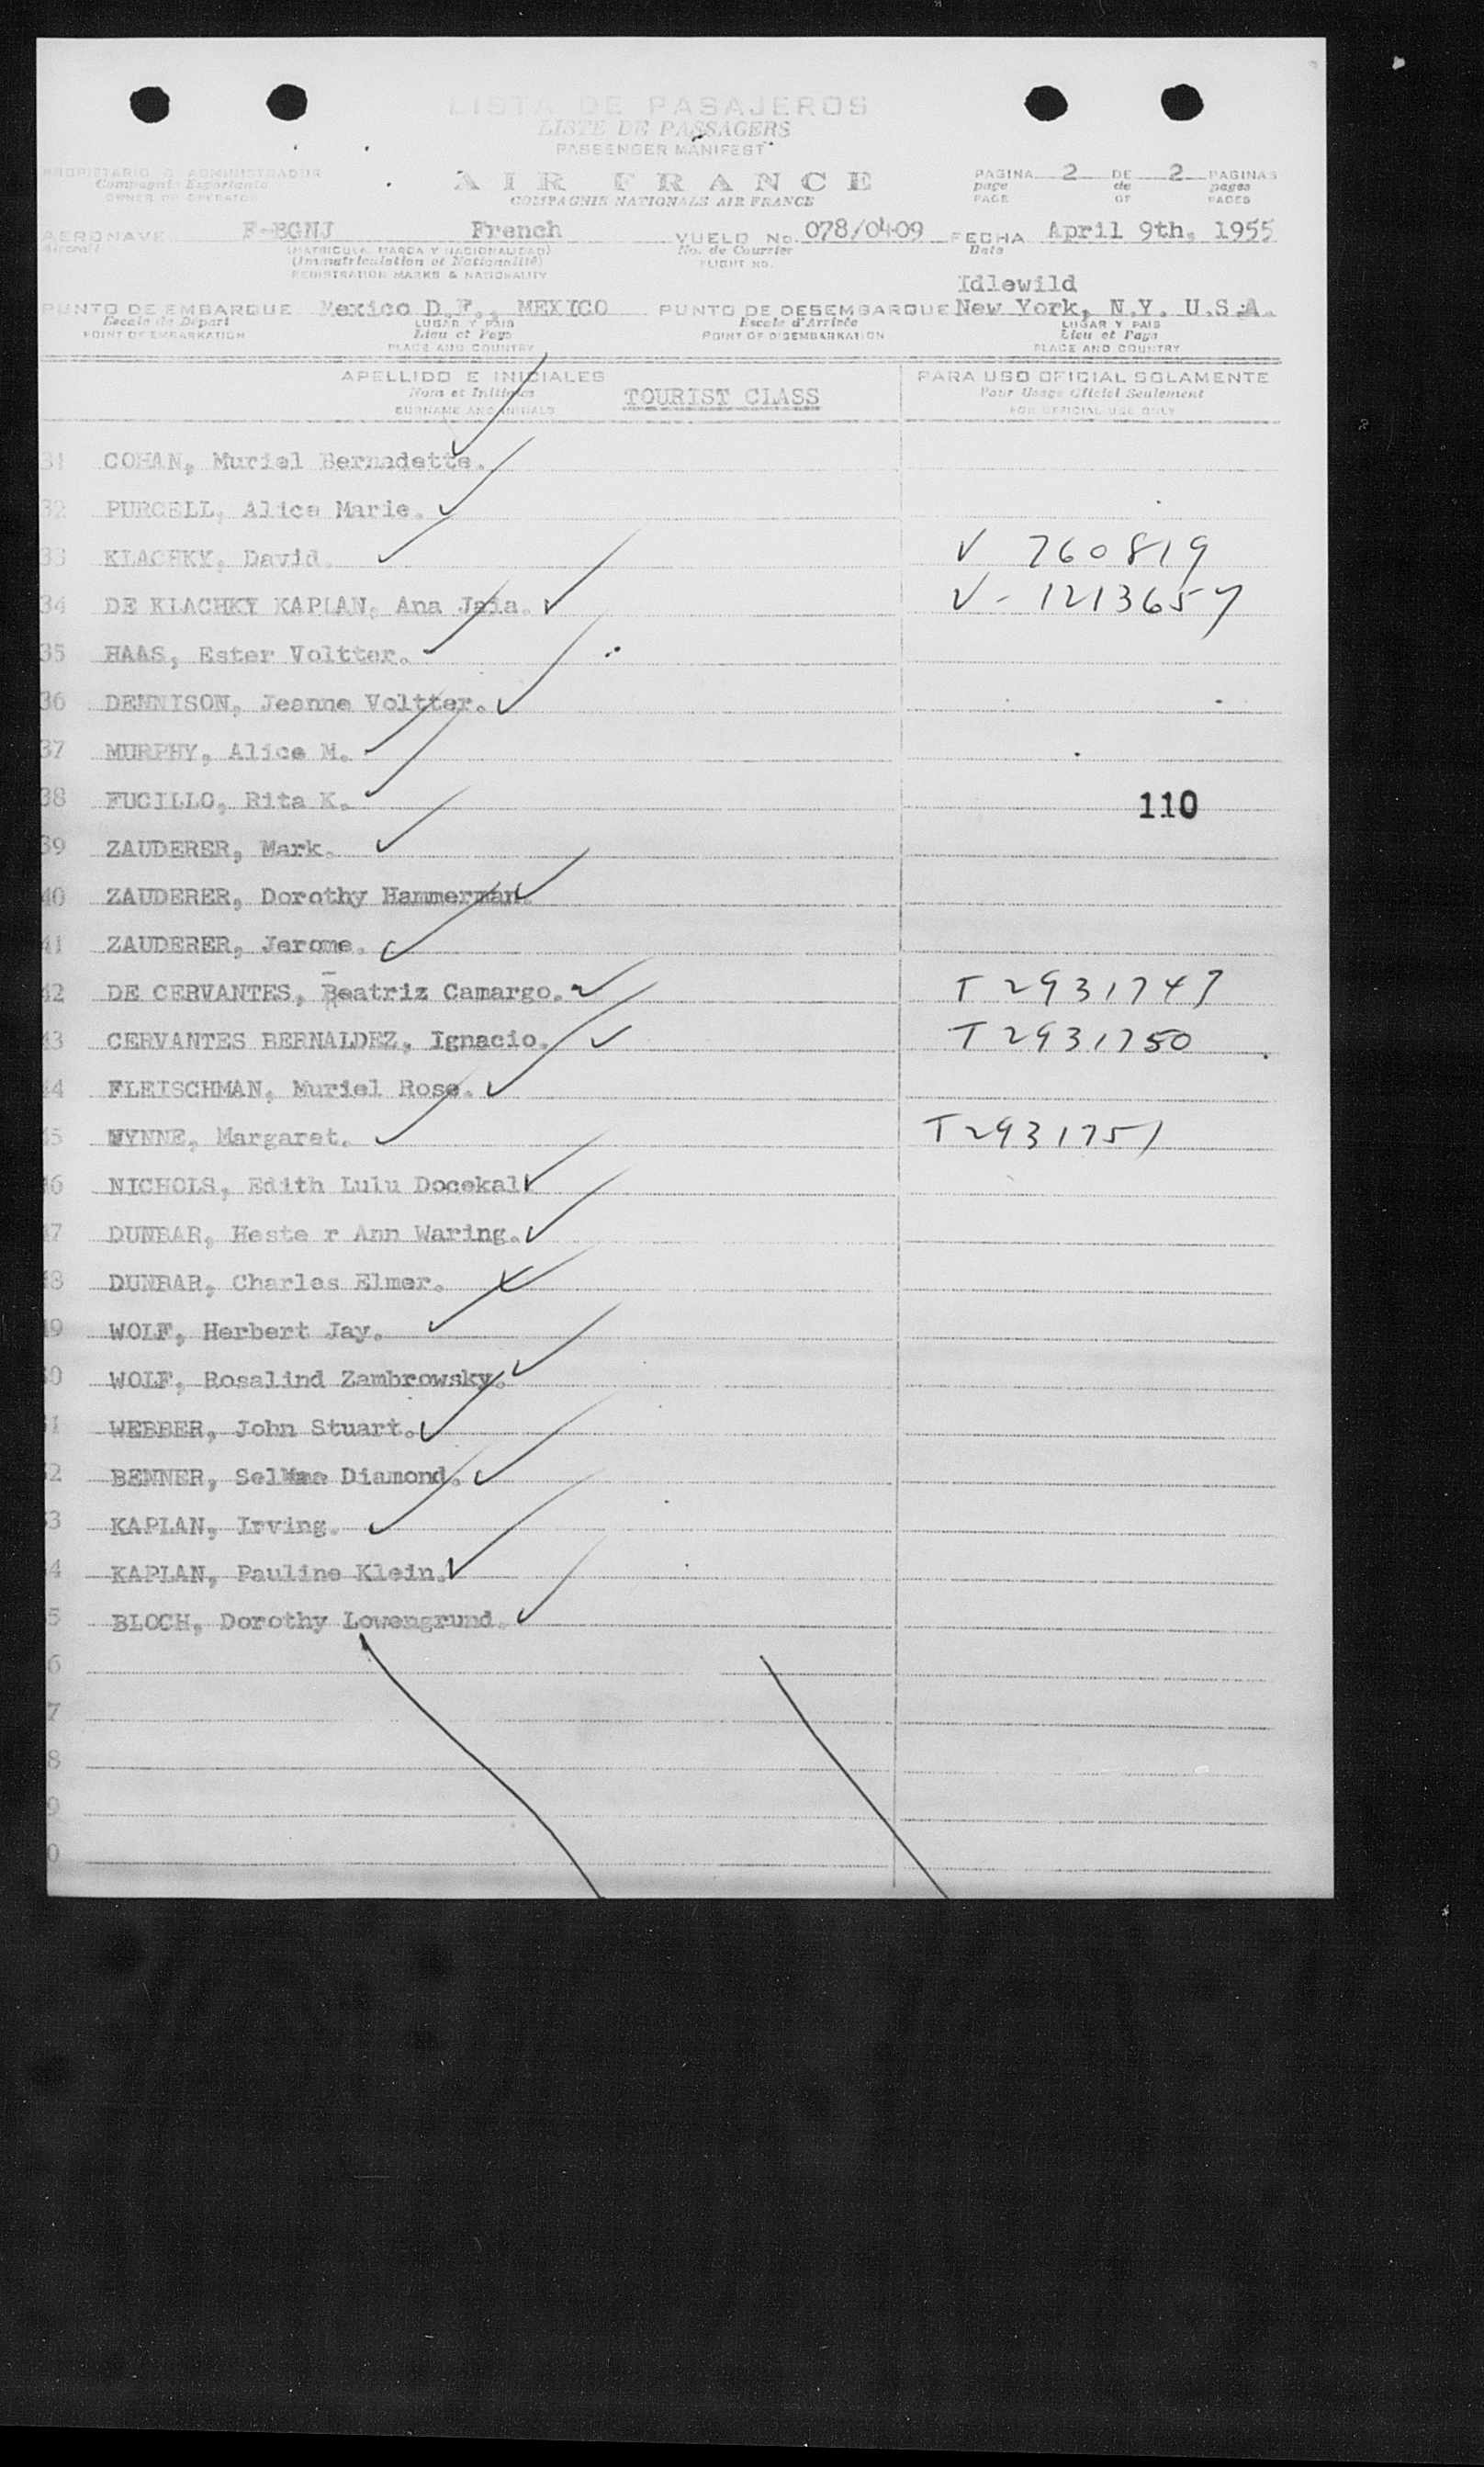 LISTA DE PASAJEROS
LISTE DE PASSAGERS
PASSENGER MANIFEST
PROPIETARIO O ADMINISTRADOR
Compagnie Exportante
OWNER OR OPERATOR
AIR FRANCE
COMPAGNIE NATIONALE AIR FRANCE
PAGINA 2 DE 2 PAGINAS
page de pages
PAGE OF PAGES
AERONAVE F-BGNJ French VUELO No. 078/04-09 FECHA April 9th, 1955
Aéronef (MATRICULA, MARCA Y NACIONALIDAD) No. de Courrier Date
(Immatriculation et Nationalité) FLIGHT NO.
REGISTRATION MARKS & NATIONALITY
Idlewild
PUNTO DE EMBARQUE Mexico D.F., MEXICO PUNTO DE DESEMBARQUE New York, N.Y. U.S.A.
Escale de Départ LUGAR Y PAIS Escale d'Arrivée LUGAR Y PAIS
POINT OF EMBARKATION Lieu et Pays POINT OF DISEMBARKATION Lieu et Pays
PLACE AND COUNTRY PLACE AND COUNTRY
APELLIDO E INICIALES PARA USO OFICIAL SOLAMENTE
Nom et Initiales TOURIST CLASS Pour Usage Officiel Seulement
SURNAME AND INITIALS FOR OFFICIAL USE ONLY
31 COHAN, Muriel Bernadette.
32 PURCELL, Alice Marie.
33 KLACHKY, David. V 760819
34 DE KLACHKY KAPLAN, Ana Jaia. V-1213657
35 HAAS, Ester Voltter.
36 DENNISON, Jeanne Voltter.
37 MURPHY, Alice M.
38 FUCILLO, Rita K. 110
39 ZAUDERER, Mark.
40 ZAUDERER, Dorothy Hammerman.
41 ZAUDERER, Jerome.
42 DE CERVANTES, Beatriz Camargo. T2931747
43 CERVANTES BERNALDEZ, Ignacio. T2931750
44 FLEISCHMAN, Muriel Rose.
45 WYNNE, Margaret. T2931751
46 NICHOLS, Edith Lulu Docekal
47 DUNBAR, Heste r Ann Waring.
48 DUNBAR, Charles Elmer.
49 WOLF, Herbert Jay.
0 WOLF, Rosalind Zambrowsky.
1 WEBBER, John Stuart.
2 BENNER, Selma Diamond.
3 KAPLAN, Irving.
4 KAPLAN, Pauline Klein.
5 BLOCH, Dorothy Lowengrund.
6
7
8
9
0